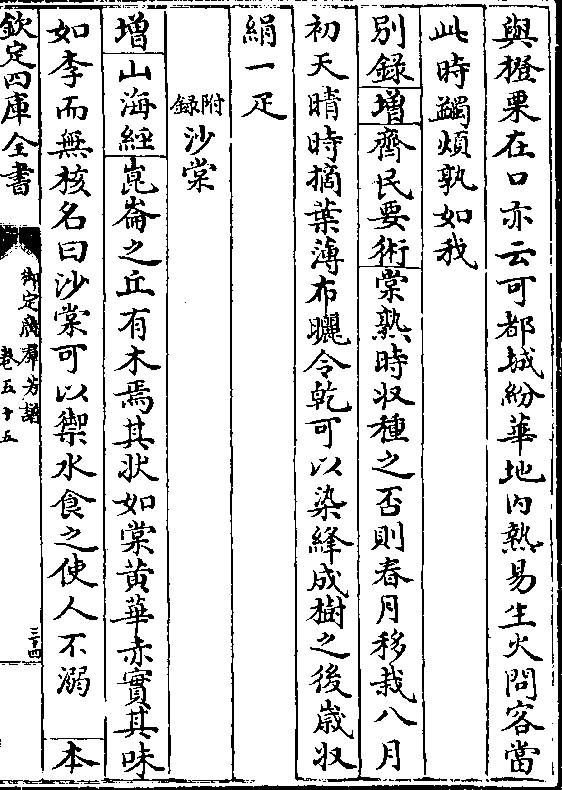 與橙栗在口亦云可都城紛華地内熱易生火問客當
此時蠲煩孰如我
别録增齊民要術棠熟時収種之否則春月移栽八月
初天晴時摘葉薄布曬令乾可以染絳成樹之後嵗収
絹一疋
附録沙棠
增山海經崑崙之丘有木焉其狀如棠黄華赤實其味
如李而無核名曰沙棠可以禦水食之使人不溺　本
欽定四庫全書
御定廣羣芳譜
卷五十五
三十四